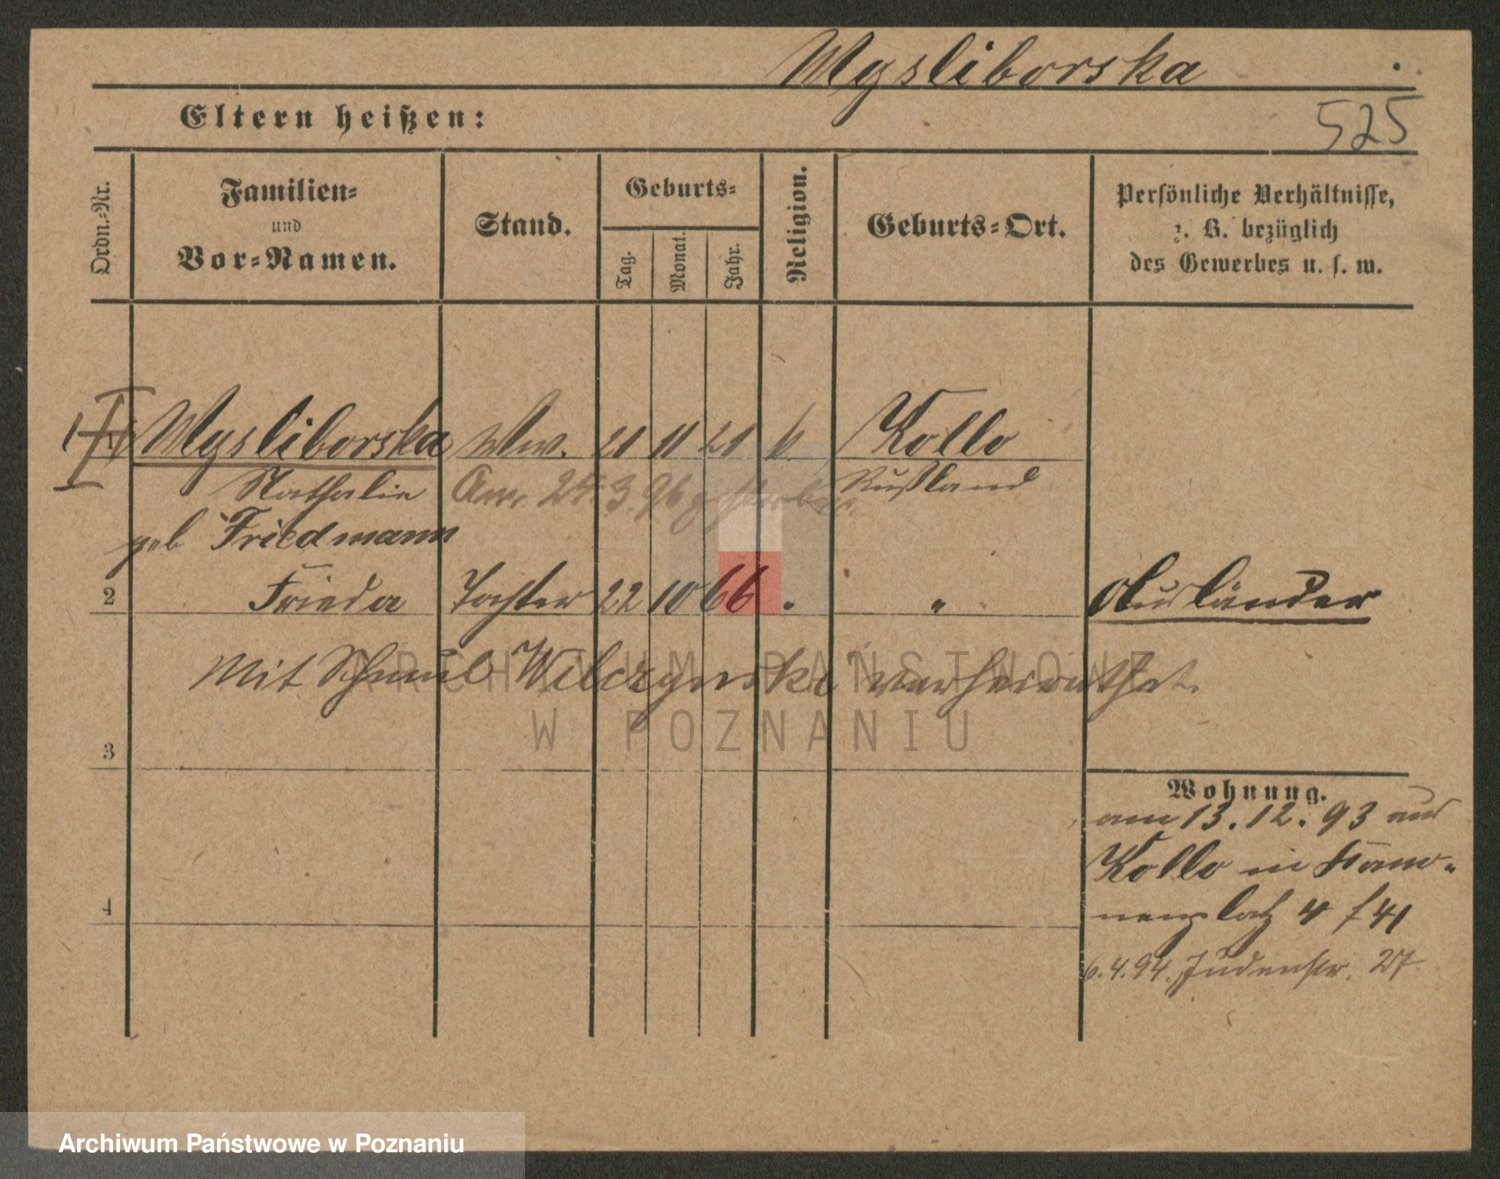 Mysliborska
Eltern heißen:
525
Ordn.-Nr.
Familien-
und
Vor-Namen.
Stand.
Geburts-
Tag.
Monat.
Jahr.
Religion.
Geburts-Ort.
Persönliche Verhältnisse,
z. B. bezüglich
des Gewerbes u. s. w.
Mysliborska Ww. 21 11 21 Kollo
Nathalie Am 25. 3. 96 gestorben. Rußland
geb Friedmann
2 Frieda Tochter 22 10 66 " " Ausländer
Mit Schmul Wilczynski verheirathet.
3
Wohnung.
am 13. 12. 93 aus
Kollo in
4
6.4.94. Judenstr. 27
ARCHIWUM PAŃSTWOWE
W POZNANIU
Archiwum Państwowe w Poznaniu